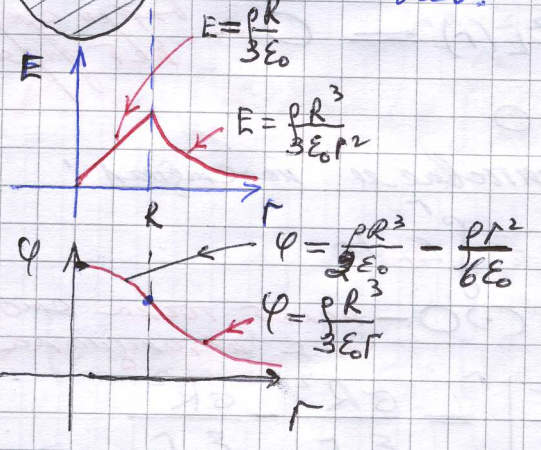 E = ρR/3ε₀
E
E = ρR³/3ε₀r²
R
r
φ
φ = ρR³/2ε₀ − ρr²/6ε₀
φ = ρR³/3ε₀r
r